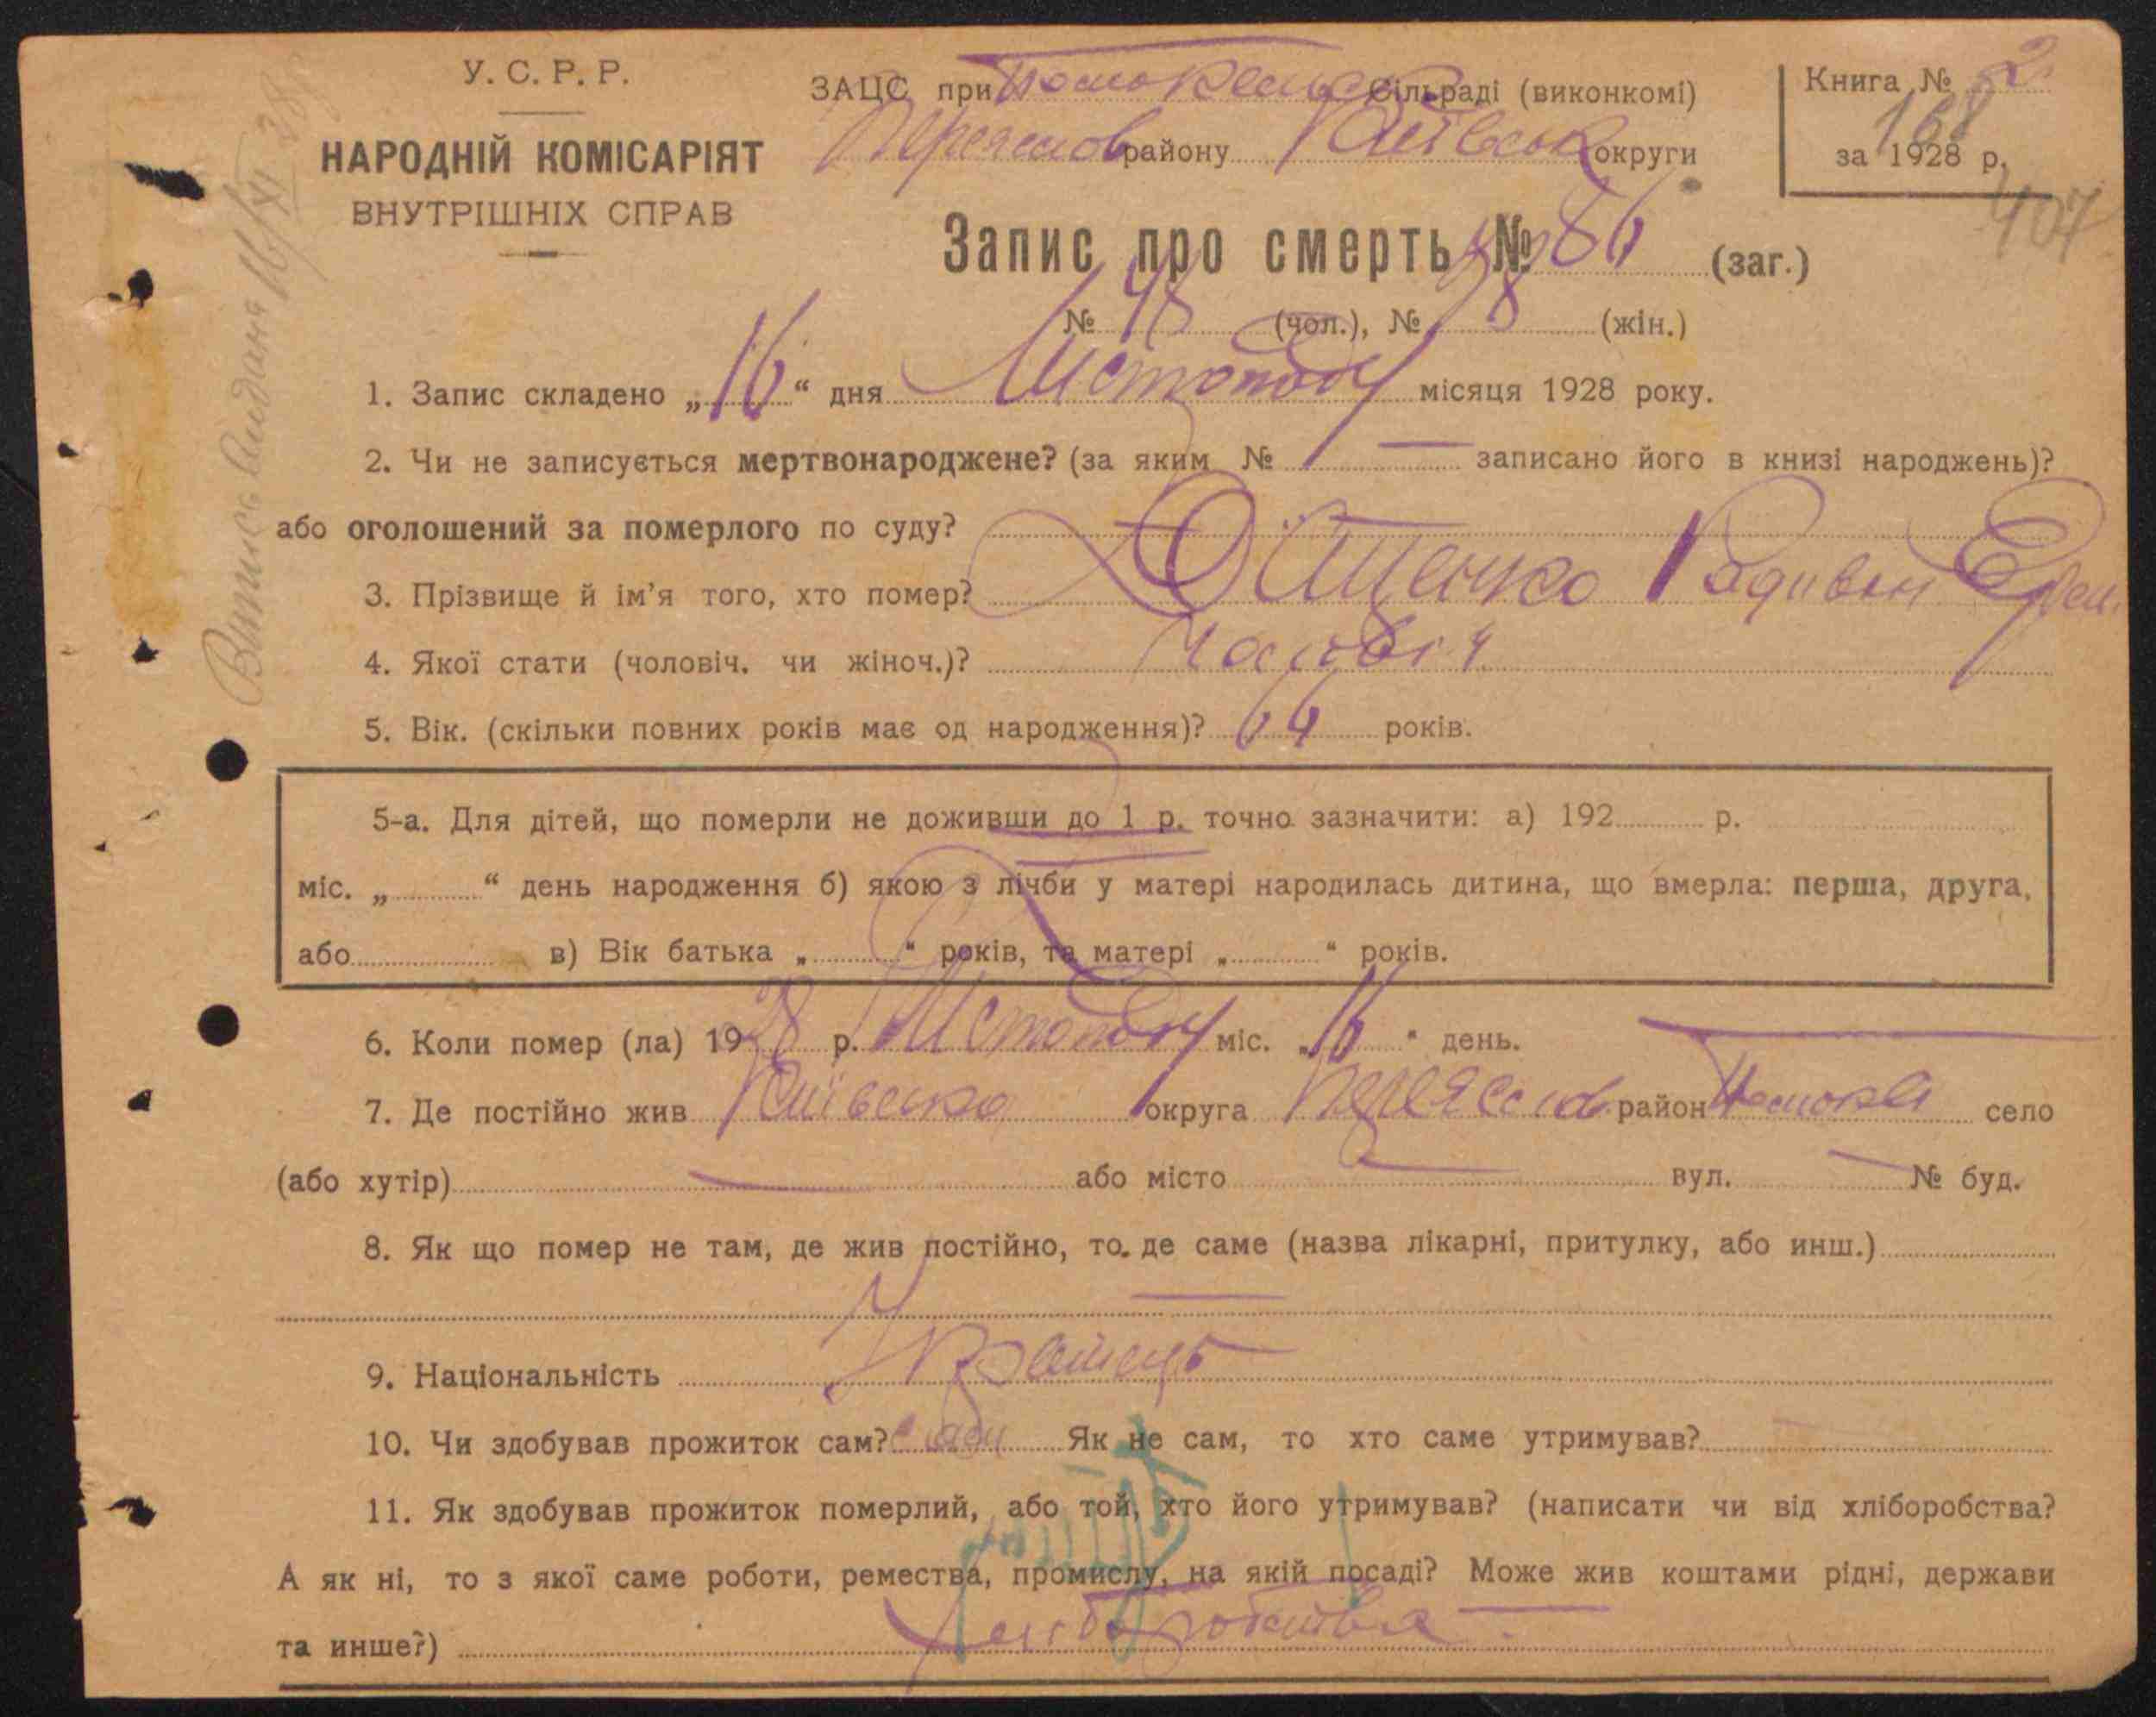 У. С. Р. Р.
НАРОДНІЙ КОМІСАРІЯТ
ВНУТРІШНІХ СПРАВ
ЗАЦС при Сільраді (виконкомі)
району Київськ округи
Книга № 2
168
за 1928 р.
407
Запис про смерть № 86 (заг.)
№ 48 (чол.), № 38 (жін.)
1. Запис складено „16“ дня Листопаду місяця 1928 року.
2. Чи не записується мертвонароджене? (за яким № — записано його в книзі народжень)?
або оголошений за померлого по суду? —
3. Прізвище й ім'я того, хто помер? Радивон
4. Якої стати (чоловіч. чи жіноч.)? Чоловіч
5. Вік. (скільки повних років має од народження)? 64 років.
5-а. Для дітей, що померли не доживши до 1 р. точно зазначити: а) 192 р.
міс. „ “ день народження б) якою з лічби у матері народилась дитина, що вмерла: перша, друга,
або в) Вік батька „ “ років, та матері „ “ років.
6. Коли помер (ла) 1928 р. Листопаду міс. „16“ день.
7. Де постійно жив Київська округа Переяслов район село
(або хутір) — або місто — вул. — № буд.
8. Як що помер не там, де жив постійно, то де саме (назва лікарні, притулку, або инш.)
—
9. Національність
10. Чи здобував прожиток сам? Як не сам, то хто саме утримував?
11. Як здобував прожиток померлий, або той, хто його утримував? (написати чи від хліборобства?
А як ні, то з якої саме роботи, ремества, промислу, на якій посаді? Може жив коштами рідні, держави
та инше?) Хліборобства